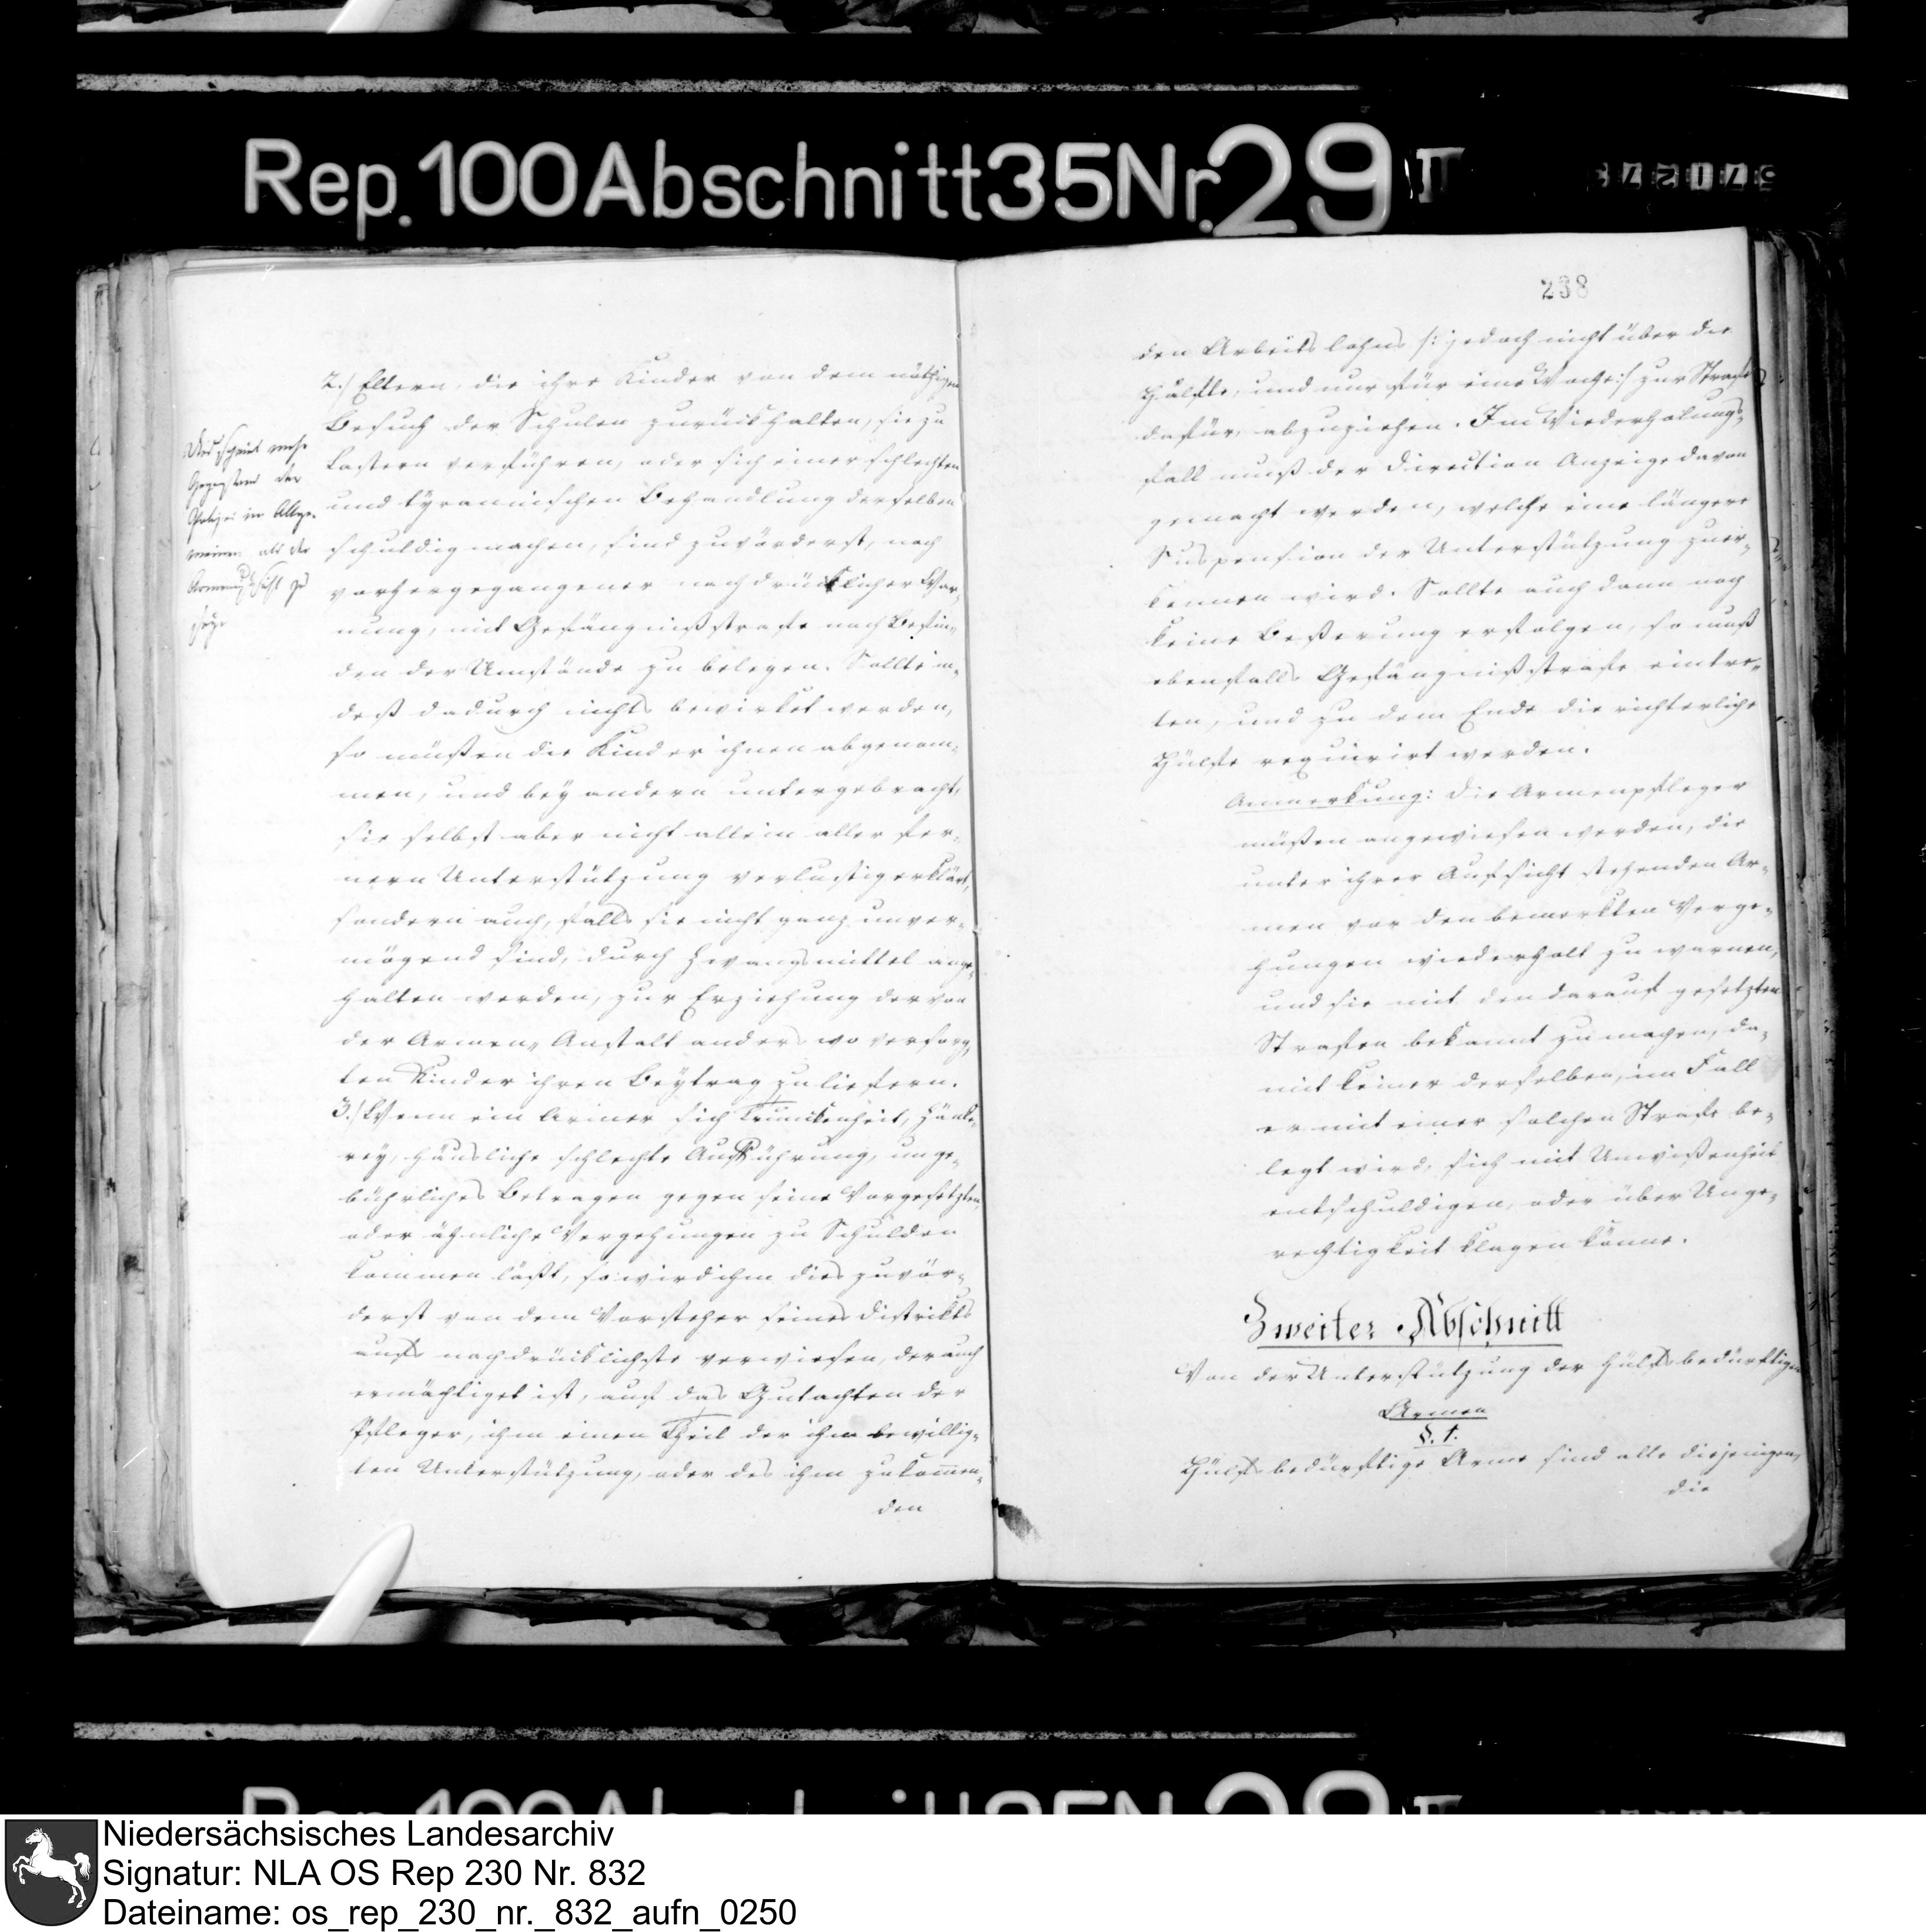 Rep. 100 Abschnitt 35 Nr. 29 II
238
2.) Eltern, die ihre Kinder von dem nöthigen
Besuch der Schulen zurückhalten, sie zu
Lastern verführen, oder sich einer schlechten
und tyrannischen Behandlung derselben
schuldig machen, sind zuvörderst, nach
vorhergegangener nachdrücklicher War-
nung, mit Gefängnißstrafe nach Befin-
den der Umstände zu belegen. Sollte in-
deß dadurch nichts bewirket werden,
so müßen die Kinder ihnen abgenom-
men, und bey andern untergebracht,
sie selbst aber nicht allein aller fer-
nern Unterstützung verlustig erklärt,
sondern auch, falls sie nicht ganz unver-
mögend sind, durch Zwangsmittel ange-
halten werden, zur Erziehung der von
der Armen-Anstalt anders wo versorg-
ten Kinder ihren Beytrag zu liefern.
3.) Wenn ein Armer sich Trunkenheit, Zänke-
rey, häusliche schlechte Aufführung, unge-
bührliches Betragen gegen seine Vorgesetzten,
oder ähnliche Vergehungen zu Schulden
kommen läßt, so wird ihm dies zuvör-
derst von dem Vorsteher seines Distrikts
aufs nachdrücklichste verwiesen, der auch
ermächtiget ist, auf das Gutachten der
Pfleger, ihm einen Theil der ihm bewillig-
ten Unterstützung, oder des ihm zukommen-
den
Dies scheint mehr
Gegenstand der
Polizei im Allge-
meinen als der
zu
den Arbeitslohns /: jedoch nicht über die
Hälfte, und nur für eine Woche :/ zur Strafe
dafür, abzuziehen. Im Wiederholungs-
fall muß der Direction Anzeige davon
gemacht werden, welche eine längere
Suspension der Unterstützung zuer-
kennen wird. Sollte auch dann noch
keine Beßerung erfolgen, so muß
ebenfalls Gefängnißstrafe eintre-
ten, und zu dem Ende die richterliche
Hülfe requirirt werden.
Anmerkung: Die Armenpfleger
müßen angewiesen werden, die
unter ihrer Aufsicht stehenden Ar-
men vor den bemerkten Verge-
hungen wiederholt zu warnen,
und sie mit den darauf gesetzten
Strafen bekannt zu machen, da-
mit keiner derselben, im Fall
er mit einer solchen Strafe be-
legt wird, sich mit Unwißenheit
entschuldigen, oder über Unge-
rechtigkeit klagen könne.
Zweiter Abschnitt
Von der Unterstützung der hülfsbedürftigen
Armen
§. 1.
Hülfsbedürftige Arme sind alle diejenigen,
die
Niedersächsisches Landesarchiv
Signatur: NLA OS Rep 230 Nr. 832
Dateiname: os_rep_230_nr._832_aufn_0250